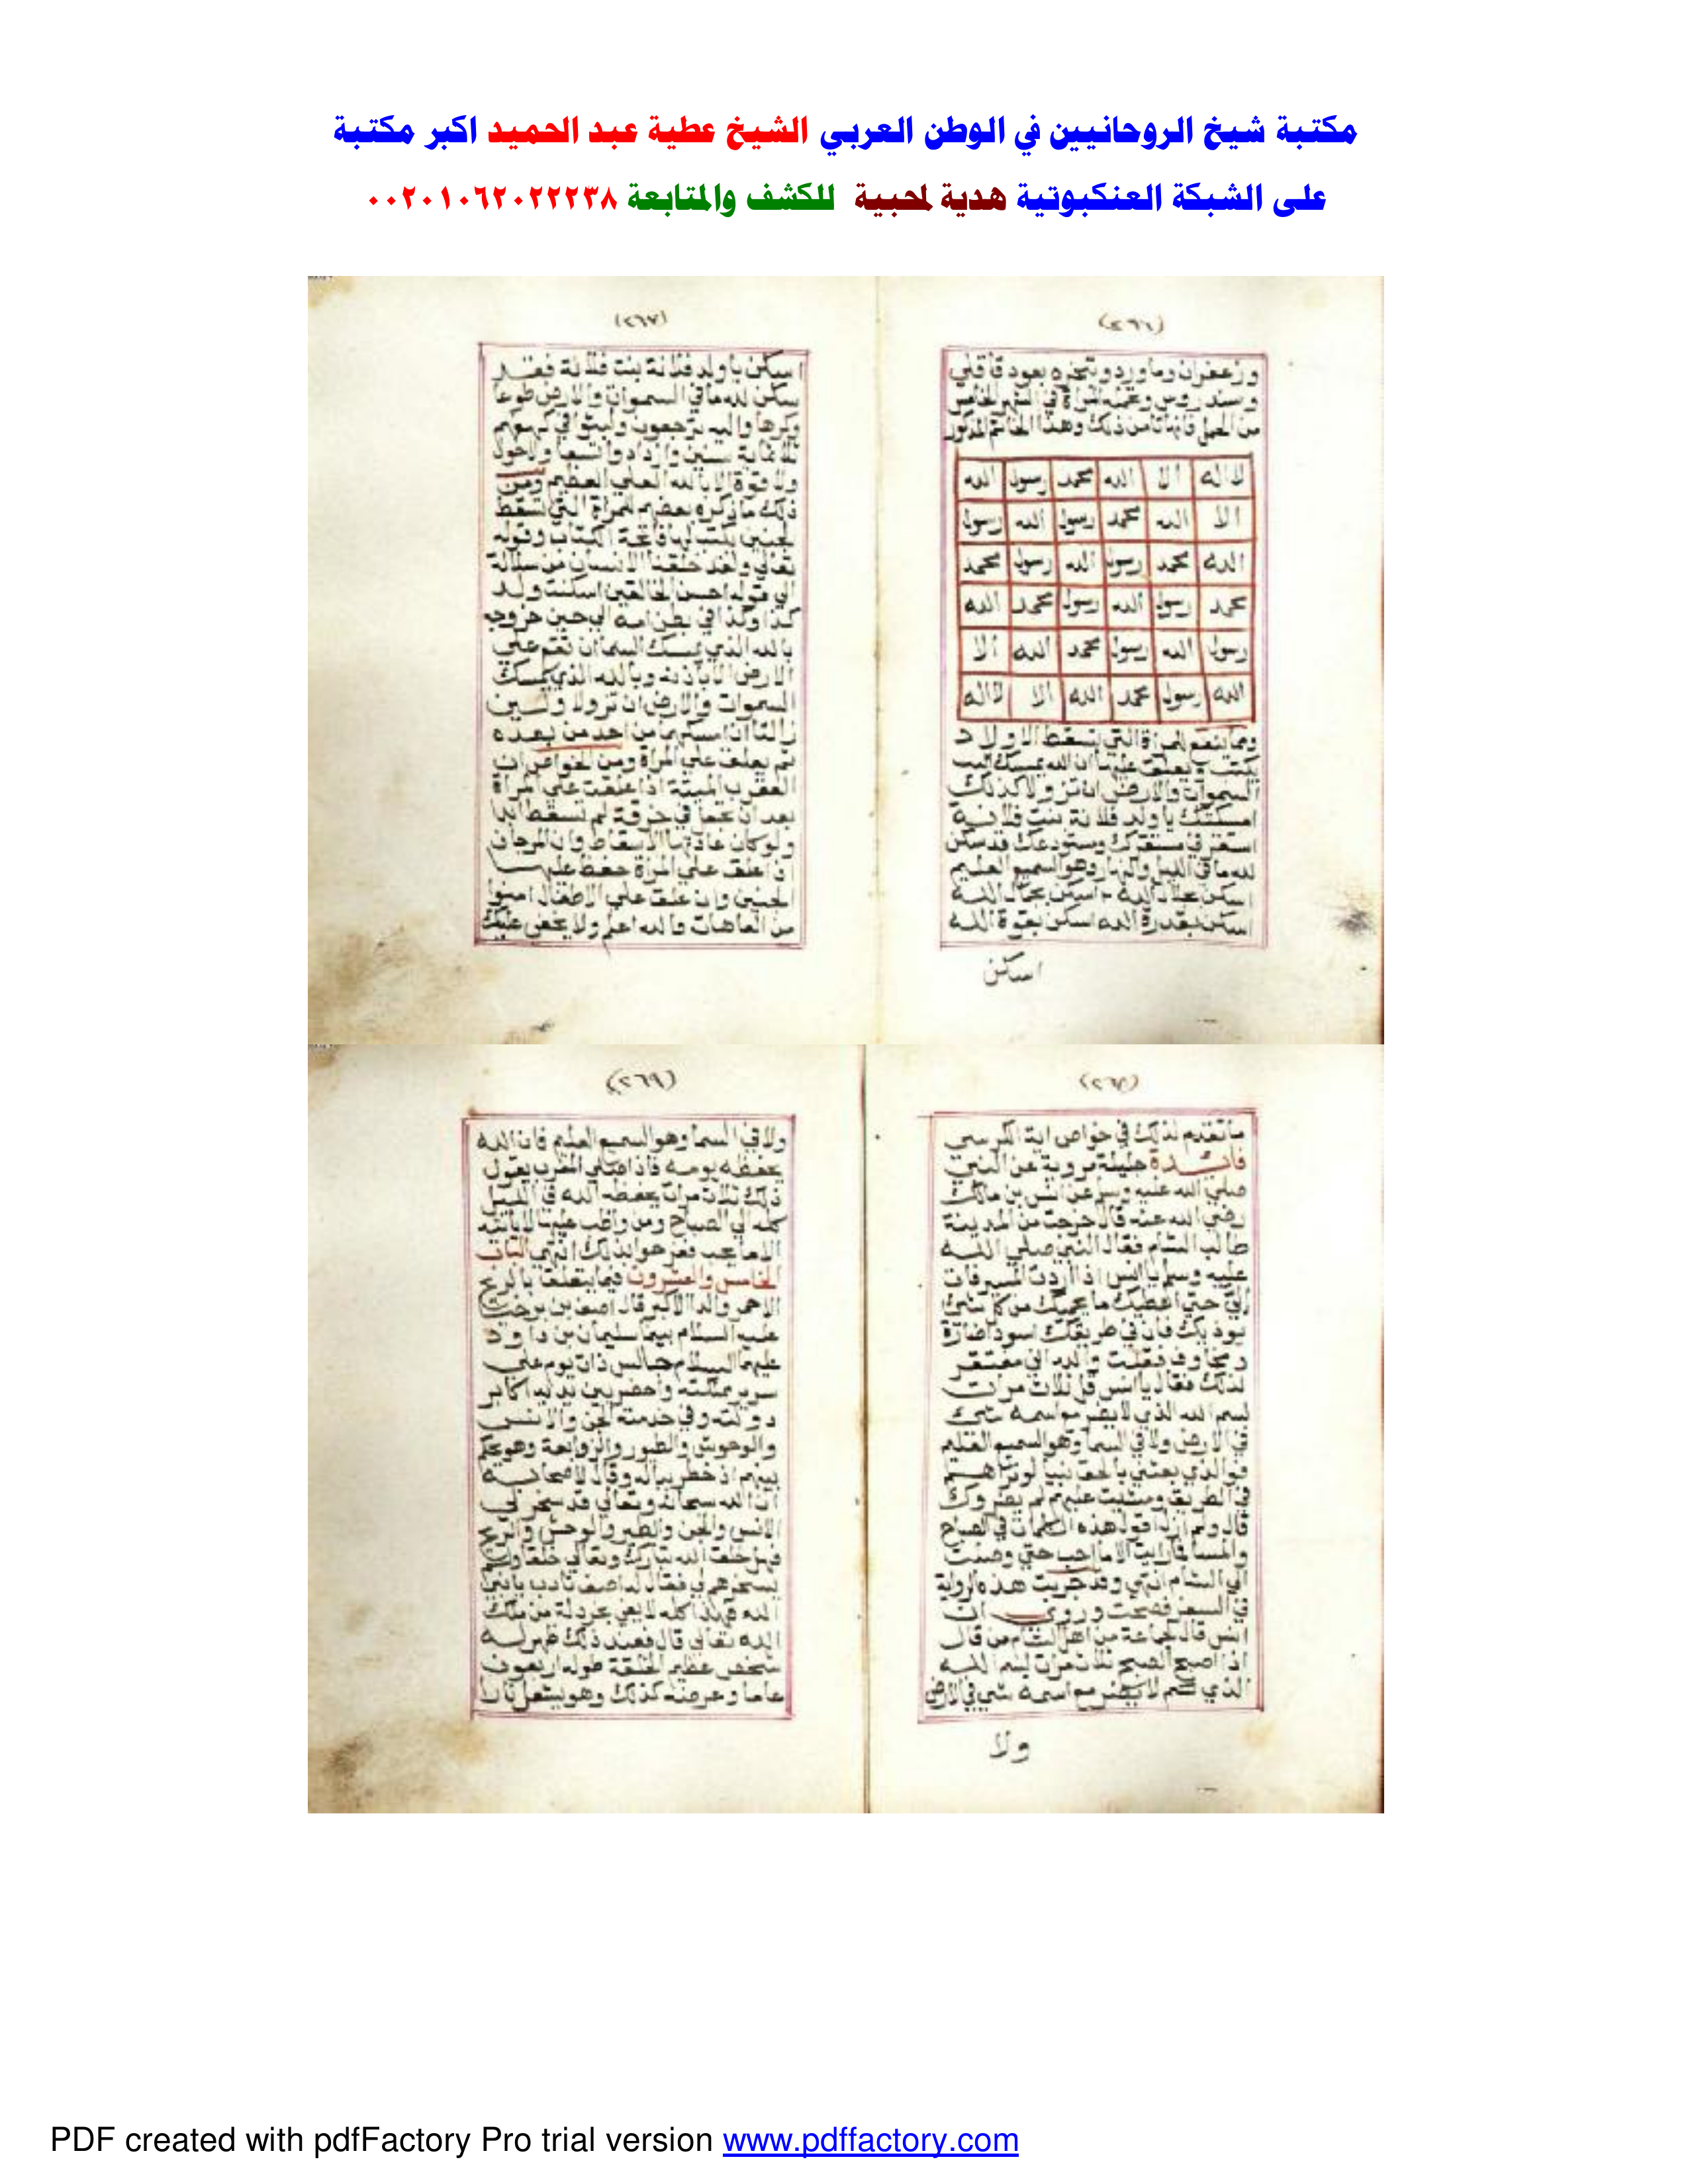 مكتبة شيخ الروحانيين في الوطن العربي الشيخ عطية عبد الحميد اكبر مكتبة
على الشبكة العنكبوتية هدية لمحبية للكشف والمتابعة ٠٠٢٠١٠٦٢٠٢٢٢٣٨
(٢٦٦)
وزعفران وماورد وتبخره بعود قاقلي
وسندروس وتحمله المراة في الشهر الخامس
من الحمل فانها تامن ذلك وهذا الخاتم المذكور
لااله الا الله محمد رسول الله
الا الله محمد رسول الله رسول
الله محمد رسول الله رسول محمد
محمد رسول الله رسول محمد الله
رسول الله رسول محمد الله الا
الله رسول محمد الله الا لااله
ومما ينفع للمراة التي تسقط الاولاد
يكتب ويعلق عليها ان الله يمسك
السموات والارض ان تزولا كذلك
امسكتك يا ولد فلانة بنت فلانة
استقر في مستقرك ومستودعك قد سكن
لله ما في الليل والنهار وهو السميع العليم
اسكن بجلال الله اسكن بجمال الله
اسكن بقدرة الله اسكن بقوة الله
اسكن
(٢٦٧)
اسكن يا ولد فلانة بنت فلانة فقد
سكن لله ما في السموات والارض طوعا
وكرها واليه ترجعون ولبثوا في كهفهم
ثلاثماية سنين وازدادوا تسعا ولاحول
ولا قوة الا بالله العلي العظيم ومن
ذلك ما ذكره بعضهم للمراة التي تسقط
الجنين يكتب لها فاتحة الكتاب وقوله
تعالي ولقد خلقنا الانسان من سلالة
الي قوله احسن الخالقين اسكنت ولد
كذا وكذا في بطن امه الي حين خروجه
بالله الذي يمسك السما ان تقع علي
الارض الا باذنه وبالله الذي يمسك
السموات والارض ان تزولا ولين
زالتا ان امسكهما من احد من بعده
ثم يعلق علي المراة ومن الخواص ان
العقرب الميتة اذا علقت علي المراة
بعد ان تجعل في خرقة لم تسقط ابدا
ولو كان عادتها الاسقاط وان المرجان
اذا علق علي المراة حفظ عليها
الجنين وان علق علي الاطفال امنوا
من العاهات والله اعلم ولا يخفي عليك
(٢٦٨)
ما تقدم لذلك في خواص اية الكرسي
فائدة جليلة مروية عن النبي
صلي الله عليه وسلم عن انس بن مالك
رضي الله عنه قال خرجت من المدينة
طالب الشام فقال النبي صلي الله
عليه وسلم يا انس اذا اردت المسير فات
الي حتي اعطيك ما يحميك من كل شي
يوذيك فان في طريقك اسودا ضارة
ومخاوف فقلت والله اني مفتقر
لذلك فقال يا انس قل ثلاث مرات
بسم الله الذي لا يضر مع اسمه شي
في الارض ولا في السما وهو السميع العليم
فوالذي بعثني بالحق نبيا لو تراهم
في الطريق ومشيت عليهم لم يضروك
قال ولم ازل اقول هذه الكلمات في الصباح
والمسا فما رايت الا ما احب حتي وصلت
الي الشام انتهي وقد جربت هذه الرواية
في السفر فصحت وروي ان
انس قال لجماعة من اهل الشام من قال
اذا اصبح الصبح ثلاث مرات بسم الله
الذي لا يضر مع اسمه شي في الارض
ولا
(٢٦٩)
ولا في السما وهو السميع العليم فان الله
يحفظه يومه فاذا صلي المغرب يقول
ذلك ثلاث مرات يحفظه الله في الليل
كله الي الصباح ومن واظب عليها
الا ما يحب انتهي الباب
الخامس والعشرون فيما يتعلق بالريح
الاحمر والدا الاكبر قال اصف بن برخيا
عليه السلام بينما سليمان بن داود
عليهما السلام جالس ذات يوم علي
سرير مملكته واحضر بين يديه اكابر
دولته وفي خدمته الجن والانس
والوحوش والطيور والزوابعة وهو يحكم
بينهم اذ خطر بباله وقال لاصحابه
ان الله سبحانه وتعالي قد سخر لي
الانس والجن والطير والوحش والريح
فهل خلق الله تبارك وتعالي خلقا ولم
يسخرهم لي فقال له اصف تادب يا نبي
الله هذا كله لا يفي بخردلة من ملك
الله تعالي قال فعند ذلك ظهر له
شخص عظيم الخلقة طوله اربعون
عاما وعرضه كذلك وهو يشتعل نارا
PDF created with pdfFactory Pro trial version www.pdffactory.com